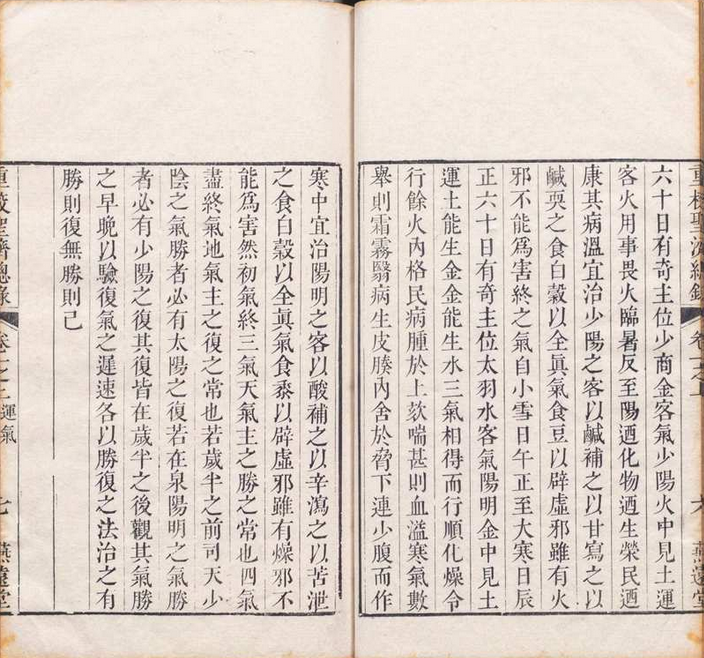 重校聖濟總錄 卷一之 六 燕遠堂
六十日有奇主位少商金客氣少陽火中見土運
客火用事畏火臨暑反至陽迺化物迺生榮民迺
康其病溫宜治少陽之客以鹹補之以甘寫之以
鹹耎之食白穀以全眞氣食豆以辟虛邪雖有火
邪不能爲害終之氣自小雪日午正至大寒日辰
正六十日有奇主位太羽水客氣陽明金中見土
運土能生金金能生水三氣相得而行順化燥令
行餘火內格民病腫於上欬喘甚則血溢寒氣數
舉則霜霧翳病生皮腠內舍於脅下連少腹而作
寒中宜治陽明之客以酸補之以辛瀉之以苦泄
之食白穀以全眞氣食黍以辟虛邪雖有燥邪不
能爲害然初氣終三氣天氣主之勝之常也四氣
盡終氣地氣主之復之常也若歲半之前司天少
陰之氣勝者必有太陽之復若在泉陽明之氣勝
者必有少陽之復其復皆在歲半之後觀其氣勝
之早晚以驗復氣之遲速各以勝復之法治之有
勝則復無勝則己
重校聖濟總錄 卷一之 運氣 七 燕遠堂